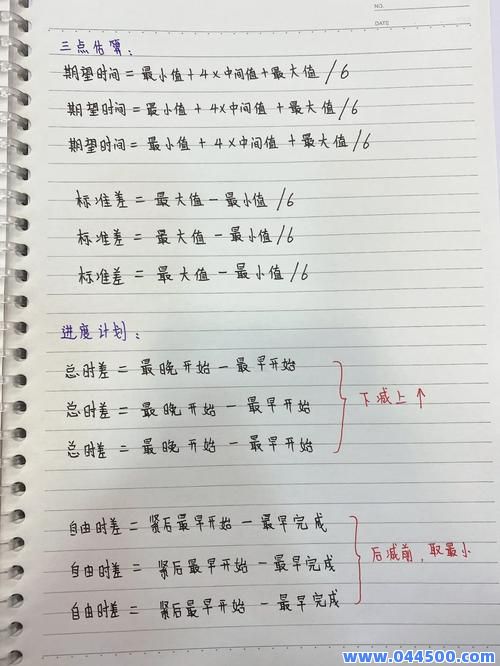 NO.
DATE
三点估算：
期望时间 = 最小值 + 4×中间值 + 最大值 /6
期望时间 = 最小值 + 4×中间值 + 最大值 /6
期望时间 = 最小值 + 4×中间值 + 最大值 /6
标准差 = 最大值 - 最小值 /6
标准差 = 最大值 - 最小值 /6
标准差 = 最大值 - 最小值 /6
进度计划：
总时差 = 最晚开始 - 最早开始
总时差 = 最晚开始 - 最早开始
下减上↑
总时差 = 最晚开始 - 最早开始
自由时差 = 紧后最早开始 - 最早完成
自由时差 = 紧后最早开始 - 最早完成
后减前，取最小
自由时差 = 紧后最早开始 - 最早完成
www.044500.com